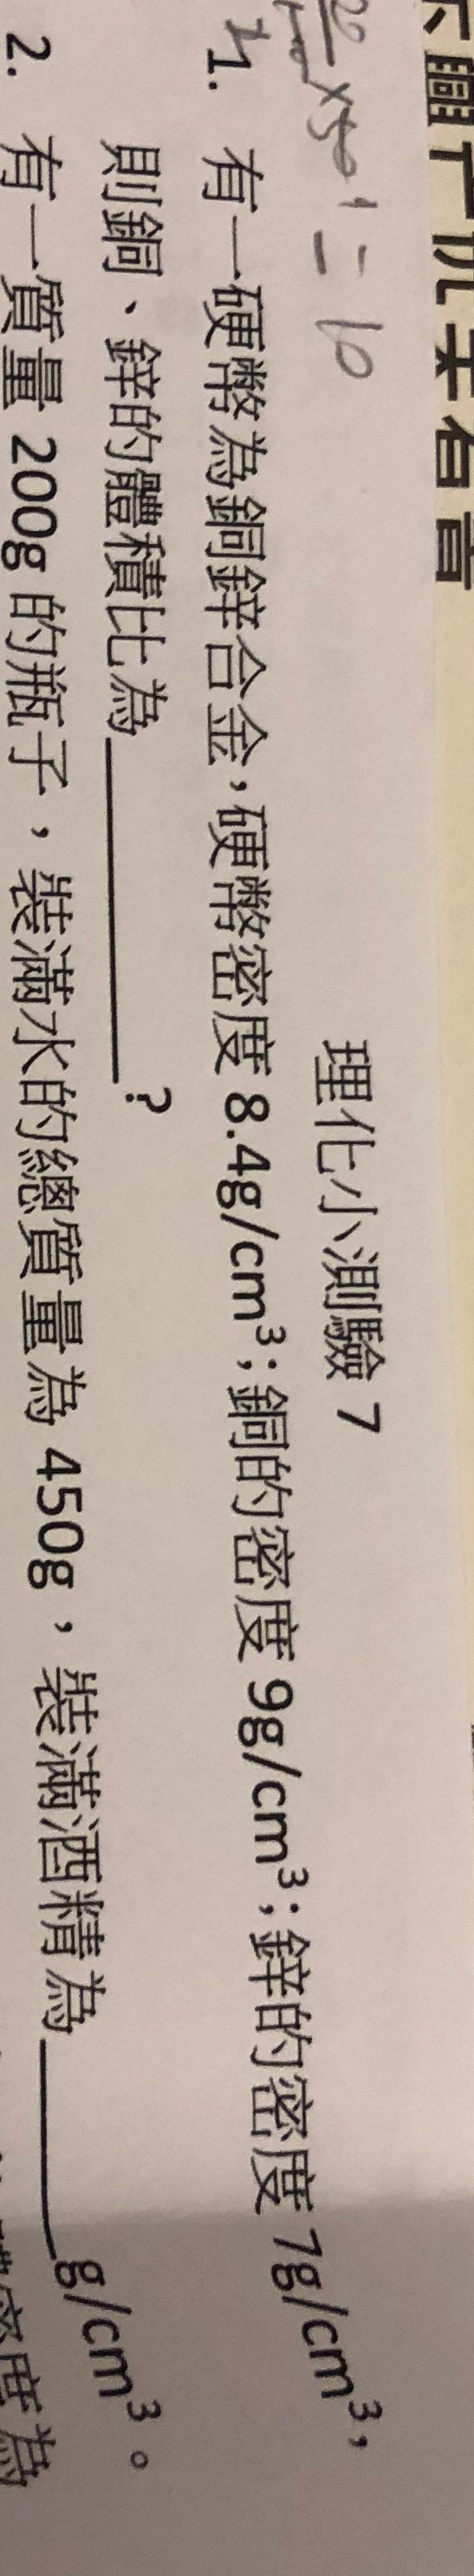 x50 = 10
理化小測驗 7
1. 有一硬幣為銅鋅合金,硬幣密度 8.4g/cm³;銅的密度 9g/cm³;鋅的密度 7g/cm³,
則銅、鋅的體積比為________?
2. 有一質量 200g 的瓶子,裝滿水的總質量為 450g,裝滿酒精為______g/cm³。
密度為